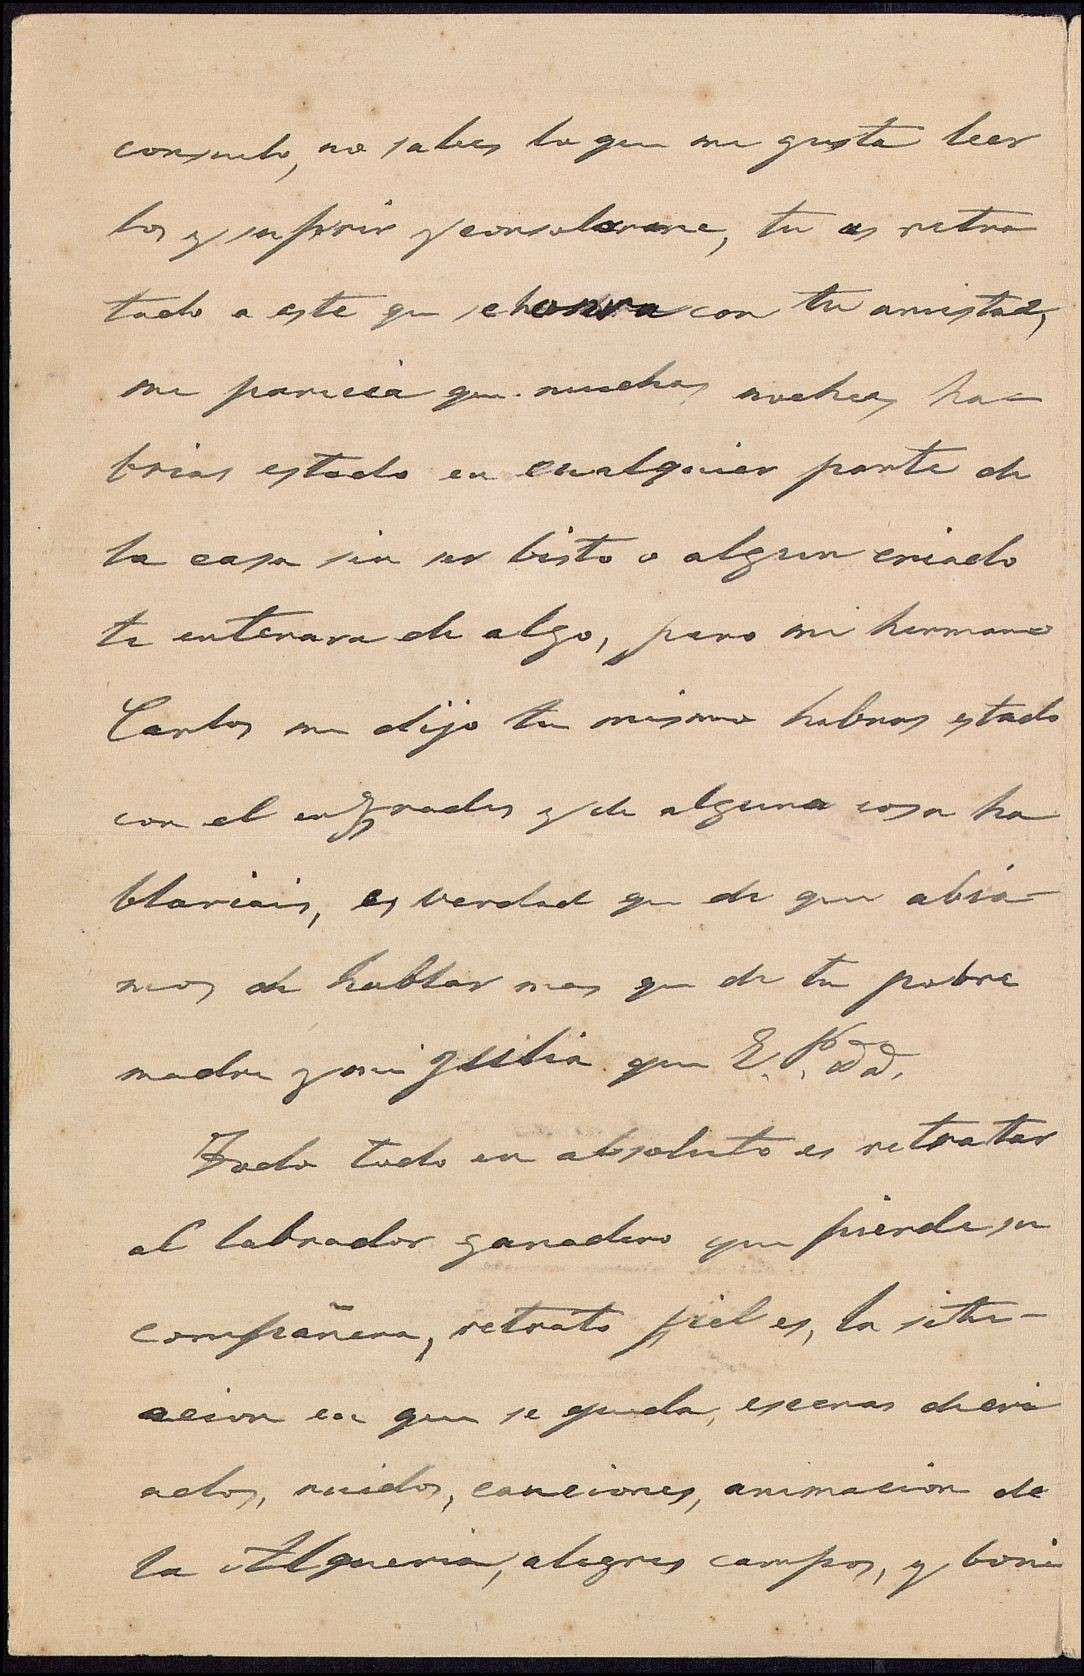 consuelo, no sabes lo que me gusta leer
los y sufrir y consolarme, tu as retra
tado a este que se honra con tu amistad,
me parecia que muchas noches ha-
brias estado en cualquier parte de
la casa sin ser bisto o algun criado
te enterara de algo, pero mi hermano
Carlos me dijo tu mismo habras estado
con el en y de alguna cosa ha
blariais, es verdad que de que abia-
mos de hablar mas que de tu pobre
madre y mi que E. P. D.
Todo todo en absoluto es retratar
al labrador ganadero que pierde su
compañera, retrato fiel es, la situ-
acion en que se queda, escenas de cri
ados, ruidos, canciones, animacion de
la Alqueria, alegres campos, y boni